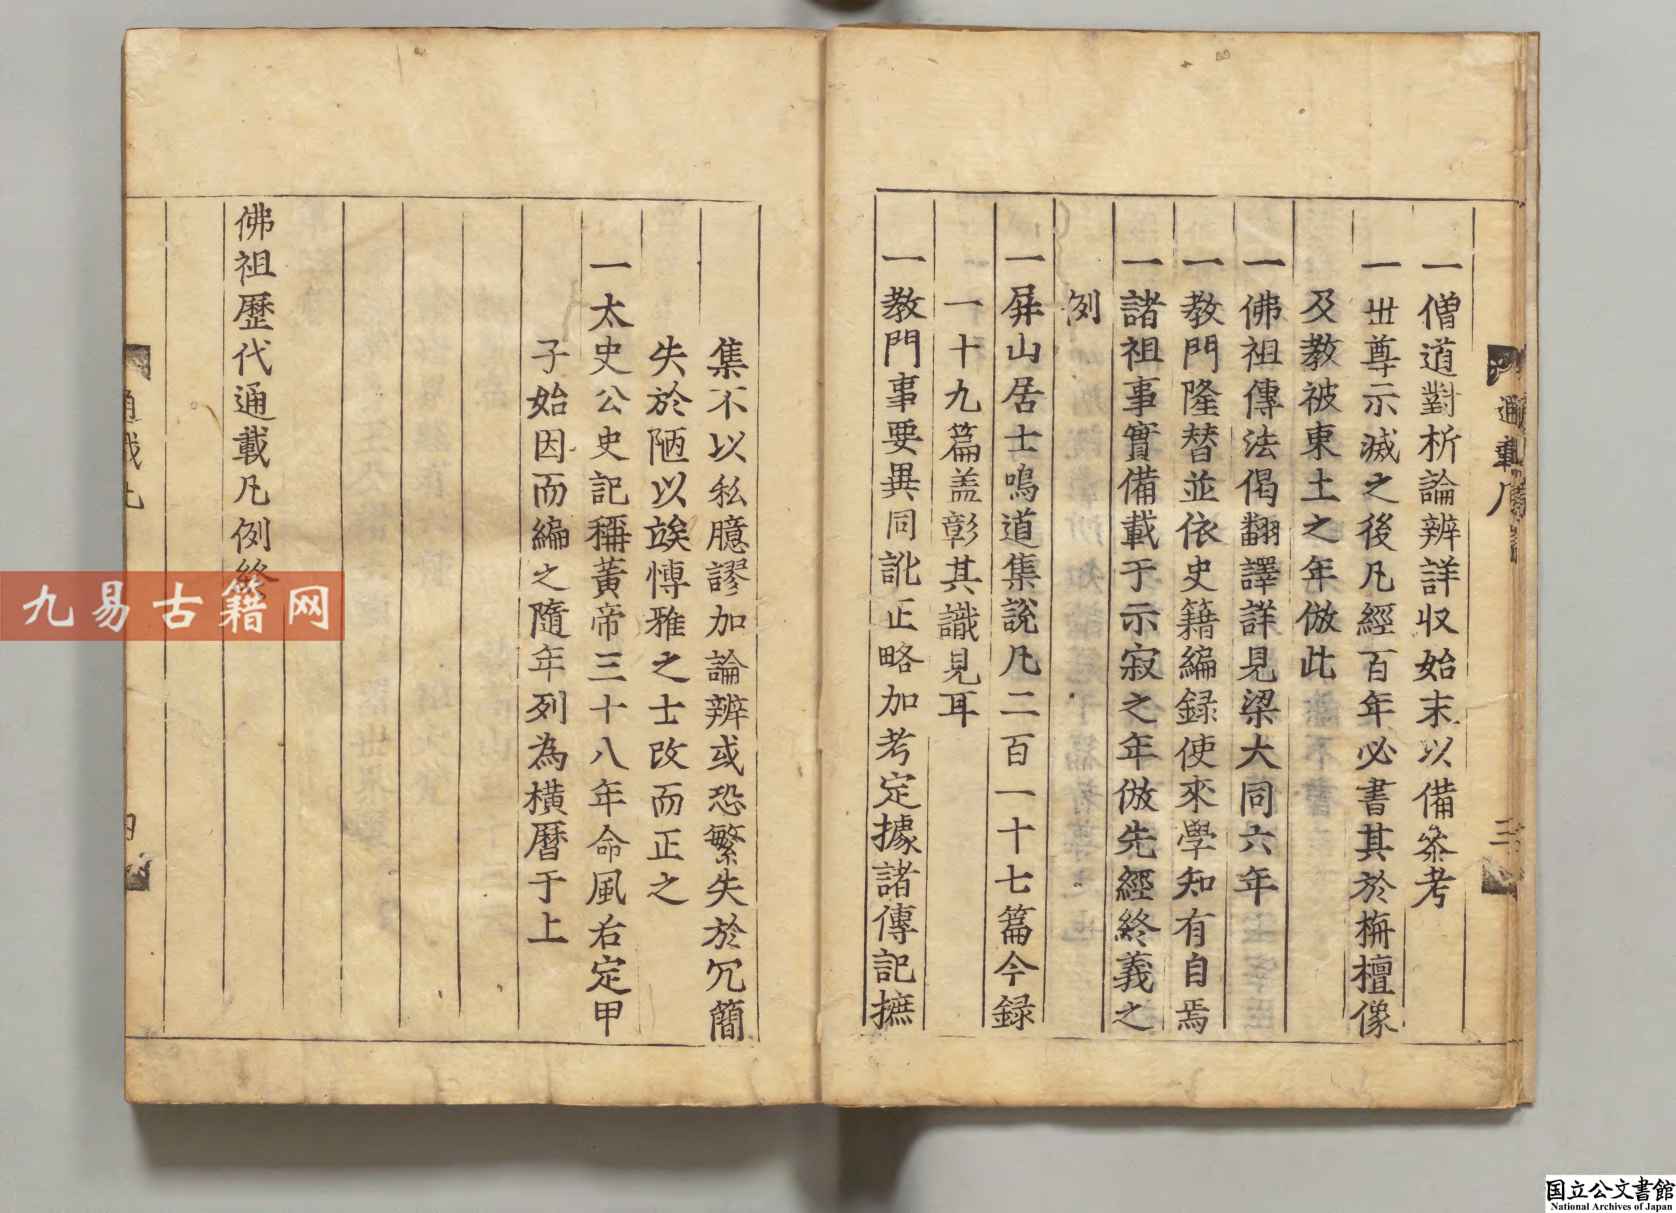 一僧道對析論辨詳収始末以備叅考
一丗尊示滅之後凡經百年必書其於栴檀像
及教被東土之年倣此
一佛祖傳法偈翻譯詳見梁大同六年
一教門隆替並依史籍編録使來學知有自焉
一諸祖事實備載于示寂之年倣先經終義之
例
一屏山居士鳴道集説凡二百一十七篇今録
一十九篇盖彰其識見耳
一教門事要異同訛正略加考定據諸傳記摭
集不以私臆謬加論辨或恐繁失於冗簡
失於陋以竢愽雅之士改而正之
一太史公史記稱黃帝三十八年命風右定甲
子始因而編之隨年列為橫曆于上
佛祖歷代通載凡例終
通載凡
三
九易古籍网
国立公文書館
National Archives of Japan